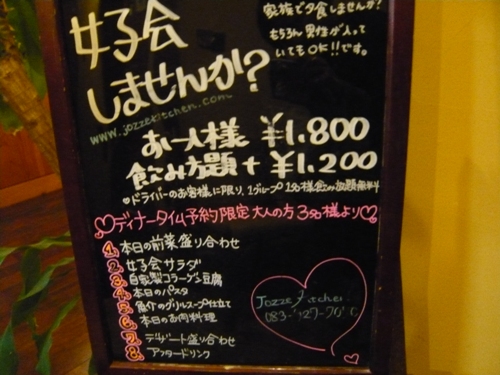 女子会
しませんか?
家族で夕食しませんか?
もちろん男性が入って
いてもOK!!です。
www.jozzekitchen.com
お一人様 ¥1,800
飲み放題+ ¥1,200
ドライバーのお客様に限り、1グループ 1名様飲み放題無料
♡ディナータイム予約限定 大人の方 3名様より♡
1. 本日の前菜盛り合わせ
2. 女子会サラダ
3. 自家製コラーゲン豆腐
4. 本日のパスタ
5. 魚介のグリルスープ仕立て
6. 本日のお肉料理
7. デザート盛り合わせ
8. アフタードリンク
Jozze Kitchen